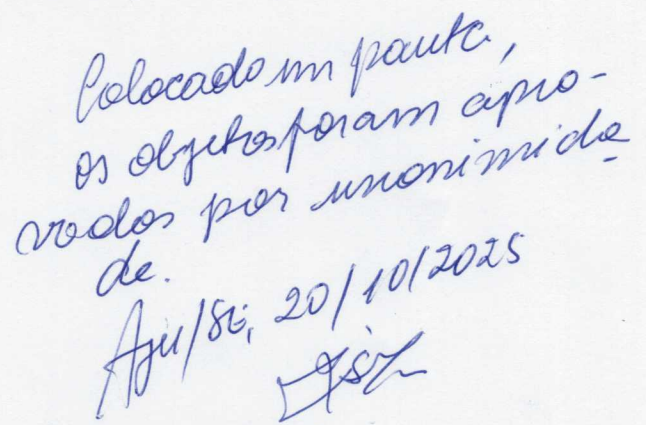 Colocado em pauta,
os objetos foram apro-
vados por unanimida
de.
Aju/SE, 20/10/2025